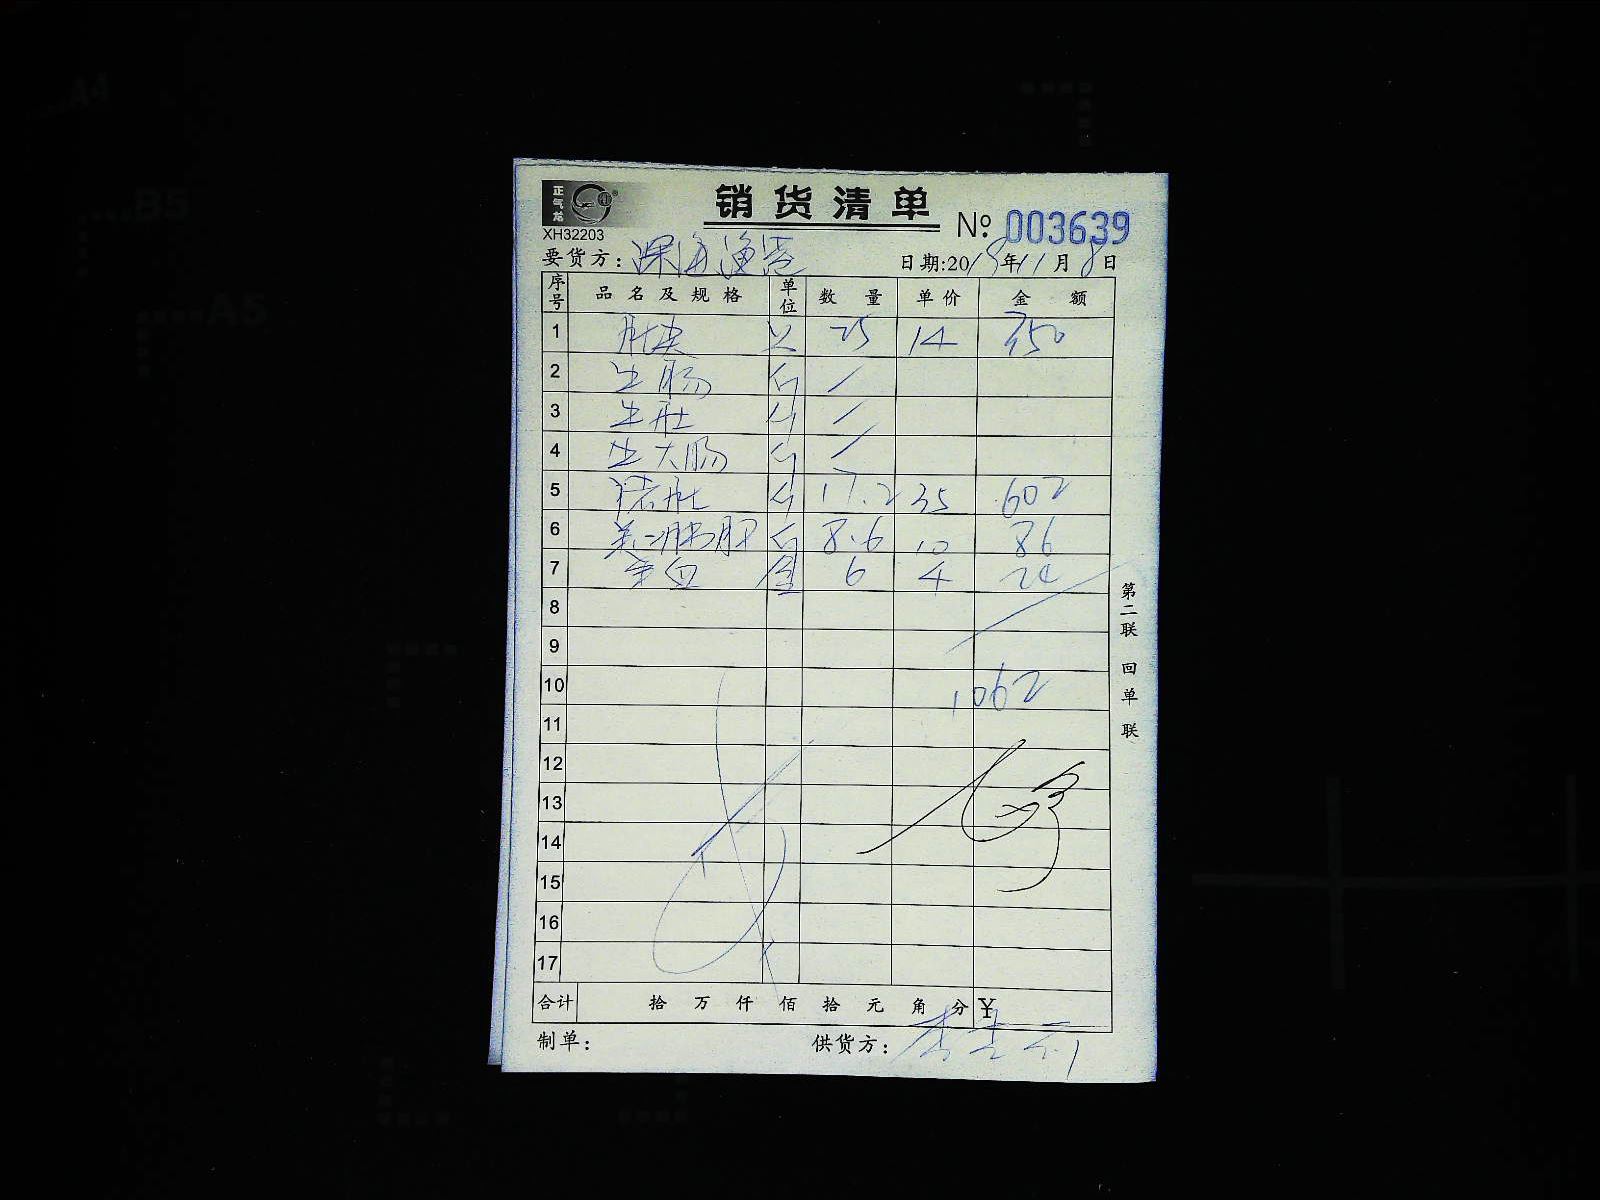 正气龙
XH32203
销货清单
№: 003639
要货方: 深海渔港 日期:2015年11月8日
序号 品名及规格 单位 数量 单价 金额
1 肚夹 只 25 14 350
2 生肠 斤 /
3 生肚 斤 /
4 生大肠 斤 /
5 猪肚 斤 17.2 35 602
6 斤 8.6 10 86
7 血 盒 6 4 24
8
9
10 1062
11
12
13
14
15
16
17
合计 拾 万 仟 佰 拾 元 角 分 ¥
制单: 供货方: 李
第二联 回单联
A4
B5
A5